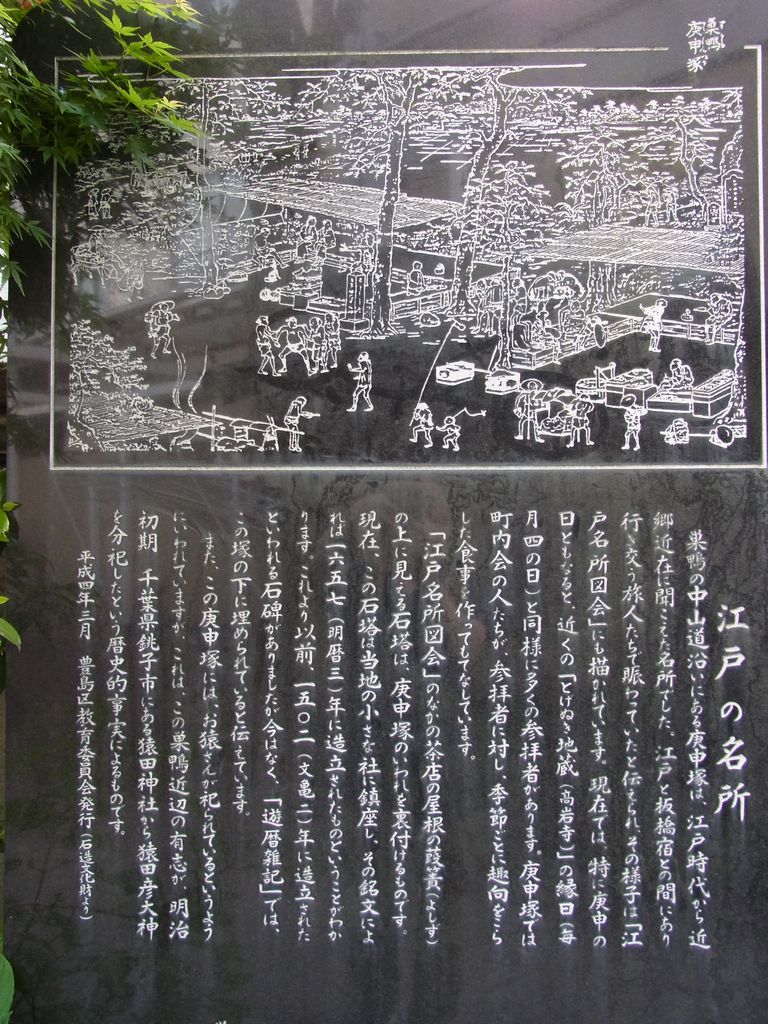 巣鴨
庚申塚
江戸の名所
巣鴨の中山道沿いにある庚申塚は、江戸時代から近
郷近在に聞こえた名所でした。江戸と板橋宿との間にあり
行き交う旅人たちで賑わっていたと伝えられ、その様子は「江
戸名所図会」にも描かれています。現在では、特に庚申の
日ともなると、近くの「とげぬき地蔵（高岩寺）」の縁日（毎
月四の日）と同様に多くの参拝者があります。庚申塚では
町内会の人たちが、参拝者に対し、季節ごとに趣向をこら
した食事を作ってもてなしています。
「江戸名所図会」のなかの茶店の屋根の葭簀（よしず）
の上に見える石塔は、庚申塚のいわれを裏付けるものです。
現在、この石塔は当地の小さな社に鎮座し、その銘文によ
れば一六五七（明暦三）年に造立されたものということがわか
ります。これより以前、一五〇二（文亀二）年に造立された
といわれる石碑がありましたが今はなく、「遊暦雑記」では、
この塚の下に埋められていると伝えています。
また、この庚申塚には、お猿さんが祀られているというよう
にいわれていますが、これは、この巣鴨近辺の有志が、明治
初期、千葉県銚子市にある猿田神社から猿田彦大神
を分祀したという歴史的事実によるものです。
平成四年三月　豊島区教育委員会発行（石造文化財より）